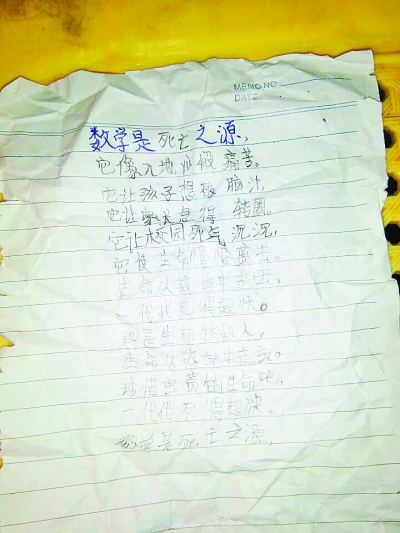 MEMO NO.
DATE
数学是死亡之源，
它像入地狱般痛苦。
它让孩子想破脑汁，
它让家长急得转圈。
它让校园死气沉沉，
它使生命慢慢离去。
生命从数学中走去，
一代代死得超快。
那是生命
生命从数学中走去。
珍惜宝贵的生命吧，
一代代死得超快。
数学是死亡之源，